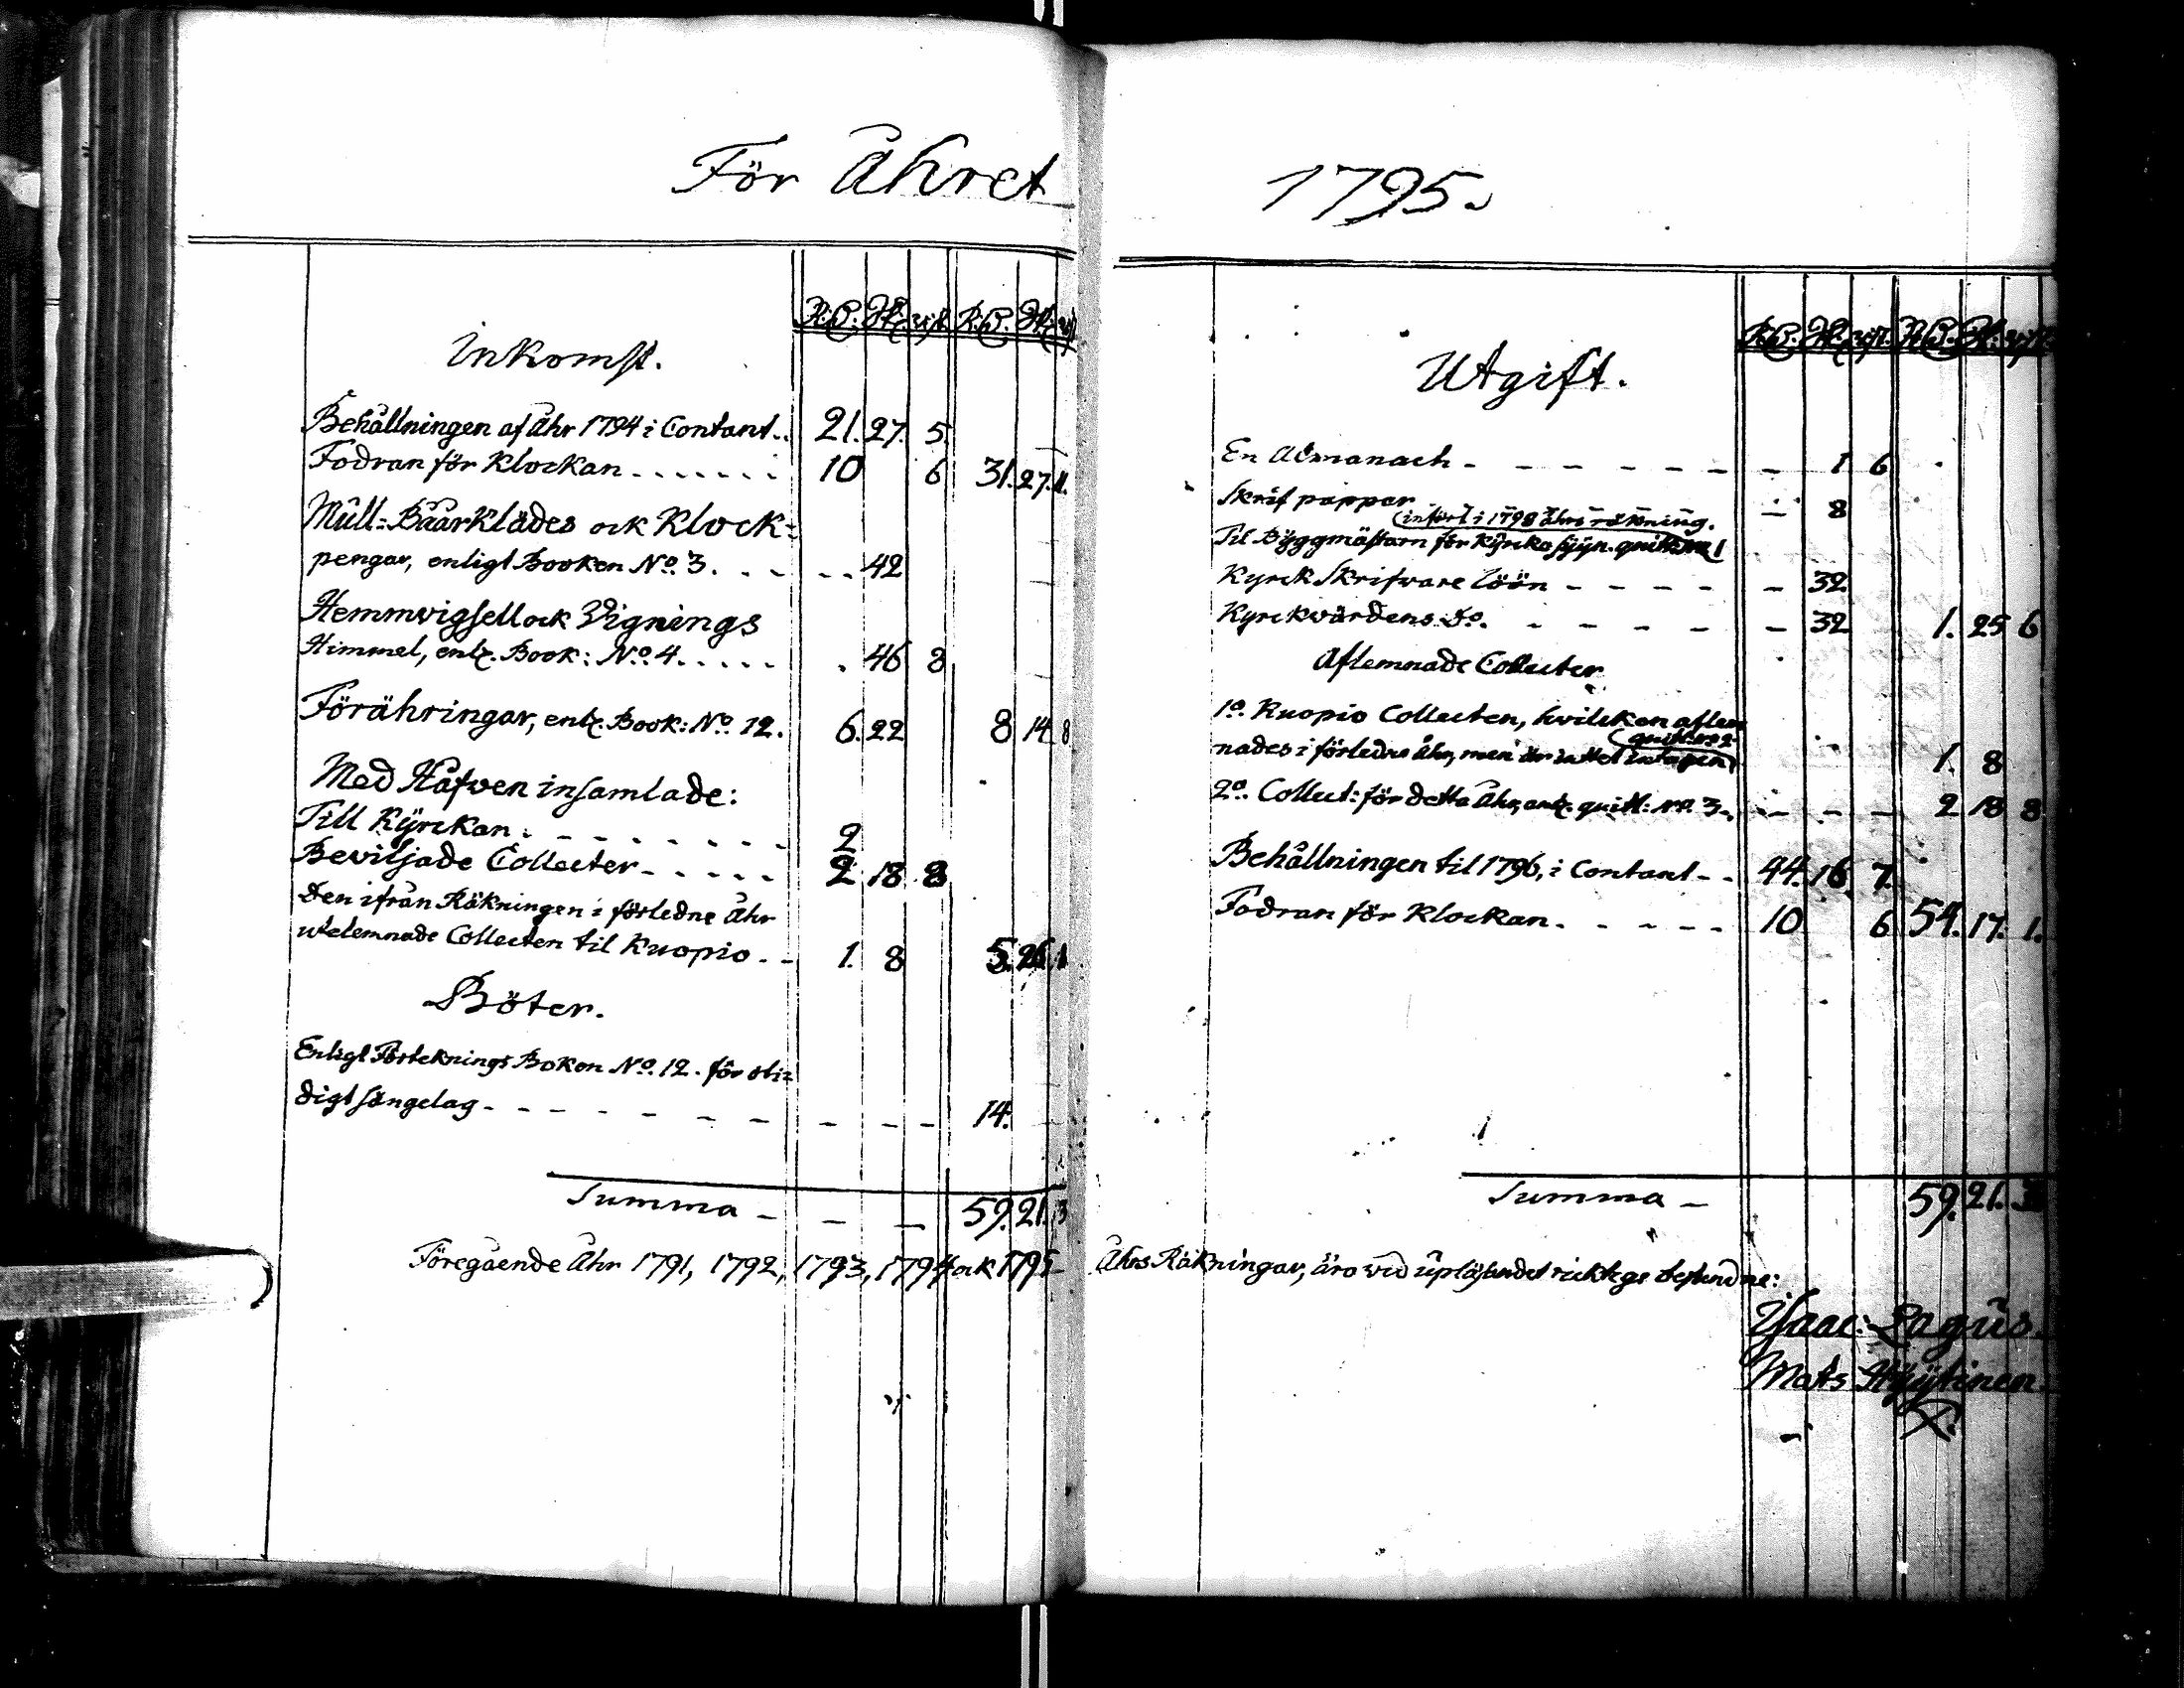 För Åhret
R:D: Sk: rst. R.D. Sk: rst
Inkomst.
Behållningen af Åhr 1794 i Contant.. 21. 27. 5.
Fodran för Klockan . . . . . . . 10 6 31. 27. 11.
Mull=Båårklädes ock Klock=
pengar, enligt Booken No. 3 . . . . . 42
Hemmvigsell ock Vignings
Himmel, enl. Book: No. 4 . . . . . . 46 8
Förähringar, enl. Book: No. 12. 6. 22 8 14 8
Med Håfven insamlade:
Till Kyrckan . - - - - - - - 2
Beviljade Collecter - . . . . . 2 18 8
Den ifrån Räkningen i förledne Åhr
utelemnade Collecten til Kuopio . - 1. 8 5. 26.
Böter.
Enligt Förteknings Boken No. 12. för oti=
digt sängelag - - - - - - - - - - 14.
Summa - - - 59. 21. 3
Föregående Åhr 1791, 1792, 1793, 1794 ock 1795
1795.
R:D: Sk: rst. R:D: Sk: rst.
Utgift.
En Almanach - - - - - - - - 1 6
Skrif papper - 8
(infört i 1798 åhrs räkning.
Til Byggmästarn för Kyrko syyn. quitt.
Kyrck Skrifvare Löön - - - - - 32
Kyrckvärdens do. - - - - - - 32 1. 25 6
Aflemnade Collecter
1o. Kuopio Collecten, hvilcken aflem
quitt: No 2
nades i förledne åhr, men är intet intagen 1. 8
2o. Collect: för detta Åhr, enl. quitt: No. 3. - - - 2 18 8
Behållningen til 1796, i Contant - - 44. 16. 7.
Fodran för Klockan . . - - - 10 6 54. 17. 1.
Summa - 59. 21. 3
Åhrs Räkningar, äro vid upläsandet ricktige befundne:
Isaac: Lagus.
Mats Hyytinen.